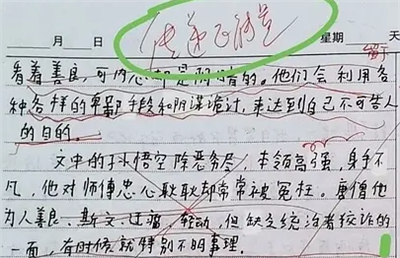 月 日 传递正能量 星期 天
看着善良，可内心却是阴暗的。他们会利用各
种各样的卑鄙手段和阴谋诡计，来达到自己不可告人
的目的。
文中的孙悟空除恶务尽，本领高强，身手不
凡，他对师傅忠心耿耿却常常被冤枉。唐僧他
为人善良、斯文、过 轻动，但缺乏统治者狡诈的
一面，有时候就特别不明事理。